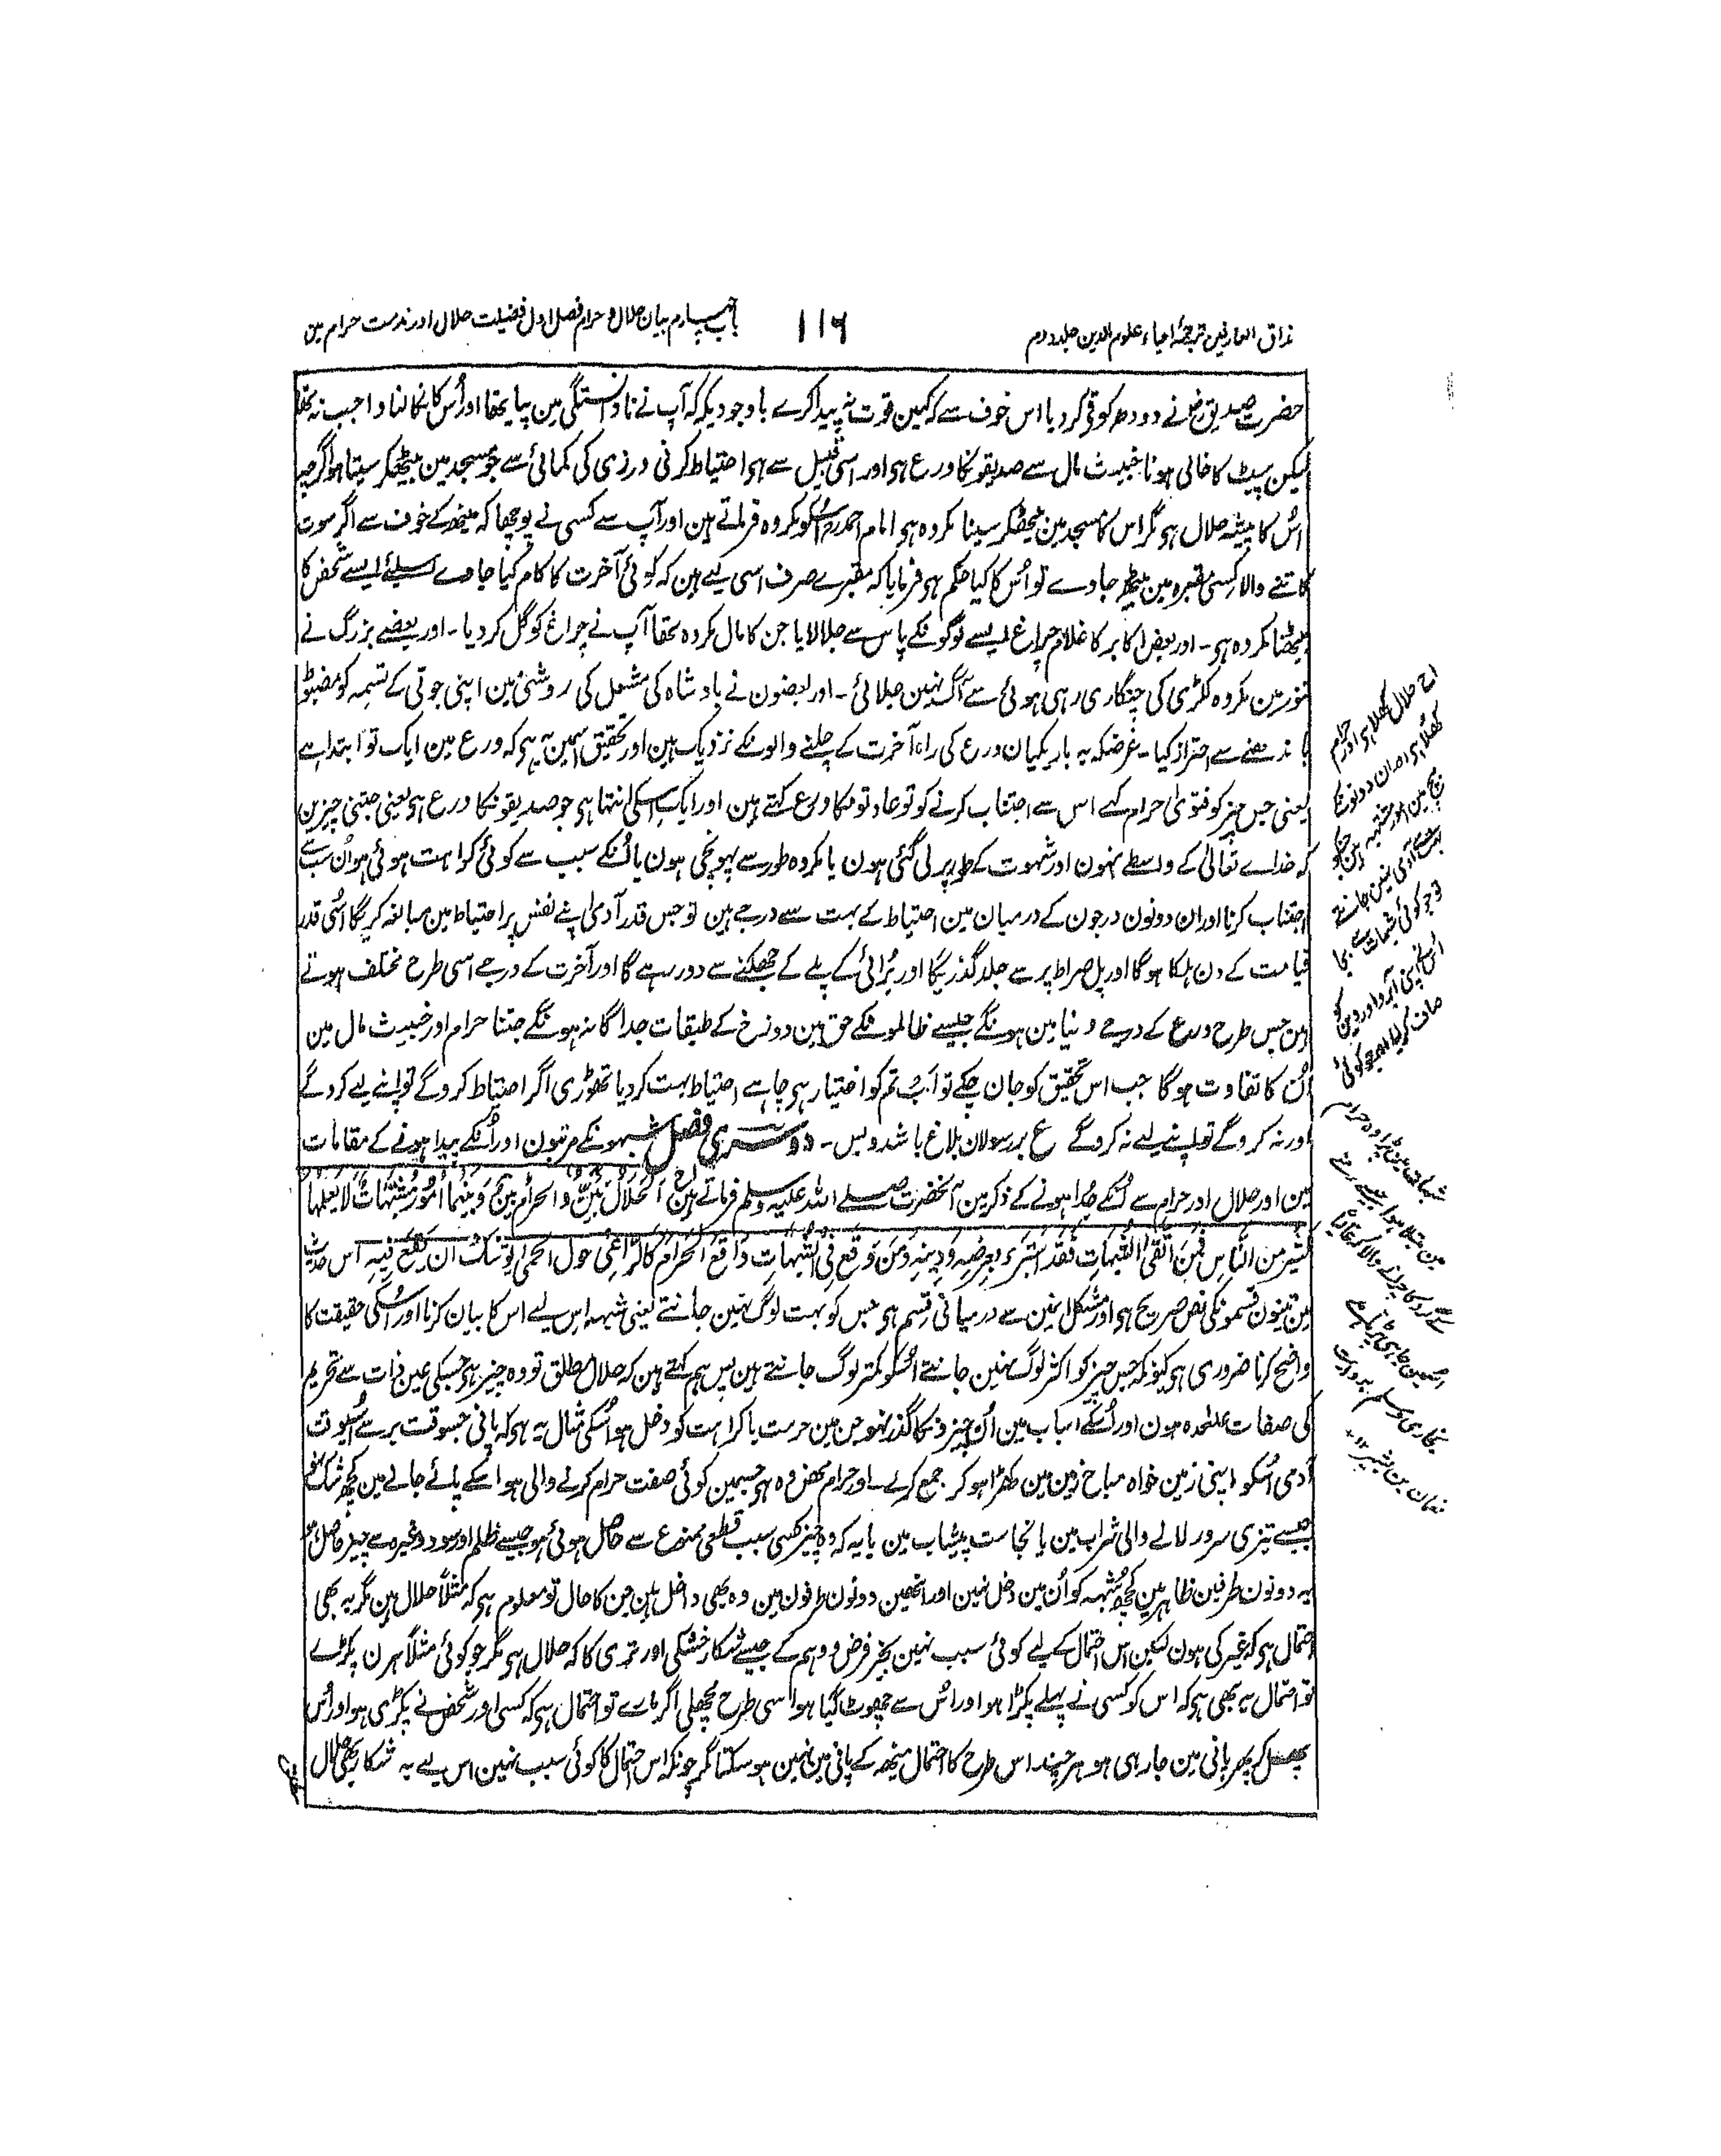 مذاق العارفین ترجمۂ احیاء علوم الدین جلد دوم
۱۱۶
باب چہارم بیان حلال و حرام فصل اول فضیلت حلال اور مذمت حرام مین
حضرت صدیق رضہ نے دودھ کو قی کر دیا اس خوف سے کہ کہین قوت نہ پیدا کرے باوجودیکہ آپ نے نادانستگی مین پیا تھا اور اُس کا نکالنا واجب نہ تھا
لیکن پیٹ کا خالی ہونا خبیث مال سے صدیقونکا ورع ہی اور اسی قبیل سے ہی احتیاط کرنی درزی کی کمائی سے جو مسجد مین بیٹھکر سیتا ہو اگرچہ
اُس کا پیشہ حلال ہی مگر اس کا مسجد مین بیٹھکر سینا مکروہ ہی امام احمد رح اسکو مکروہ فرماتے ہین اور آپ سے کسی نے پوچھا کہ مینھ کے خوف سے اگر سوت
کاتنے والا کسی مقبرہ مین بیٹھ جاوے تو اُس کا کیا حکم ہی فرمایا کہ مقبرے صرف اسی لیے ہین کہ کوئی آخرت کا کام کیا جاوے اسلیے ایسے شخص کا
بیٹھنا مکروہ ہی۔ اور بعض اکابر کا غلام چراغ ایسے لوگونکے پاس سے جلا لایا جن کا مال مکروہ تھا آپ نے چراغ کو گل کر دیا۔ اور بعضے بزرگ نے
تنور مین مکروہ لکڑی کی چنگاری رہی ہوئی سے آگ نہین جلائی۔ اور بعضون نے بادشاہ کی مشعل کی روشنی مین اپنی جوتی کے تسمہ کو مضبوط
باندھنے سے احتراز کیا۔ غرضکہ یہ باریکیان ورع کی راہ آخرت کے چلنے والونکے نزدیک ہین اور تحقیق اسمین یہ ہی کہ ورع مین ایک تو ابتدا ہے
یعنی جس چیز کو فتویٰ حرام کہے اس سے اجتناب کرنے کو تو عادلونکا ورع کہتے ہین اور ایک اسکی انتہا ہی جو صدیقونکا ورع ہی یعنی جتنی چیزین
کہ خداے تعالیٰ کے واسطے نہون اور شہوت کے طور پر لی گئی ہون یا مکروہ طور سے پہونچی ہون یا اُنکے سبب سے کوئی کراہت ہوئی ہو اُن سب سے
اجتناب کرنا اور ان دونون درجون کے درمیان مین احتیاط کے بہت سے درجے ہین تو جس قدر آدمی اپنے نفس پر احتیاط مین مبالغہ کریگا اُسی قدر
قیامت کے دن ہلکا ہوگا اور پل صراط پر سے جلد گذریگا اور بُرائی کے پلے کے جھکنے سے دور رہے گا اور آخرت کے درجے اسی طرح مختلف ہوتے
ہین جس طرح ورع کے درجے دنیا مین ہونگے جیسے ظالمونکے حق مین دوزخ کے طبقات جداگانہ ہونگے جتنا حرام اور خبیث مال مین
اُن کا تفاوت ہوگا جب اس تحقیق کو جان چکے تو اب تم کو اختیار ہی چاہے احتیاط بہت کرو یا تھوڑی اگر احتیاط کروگے تو اپنے لیے کروگے
اور نہ کروگے تو اپنے لیے نہ کروگے ع بر رسولان بلاغ باشد و بس۔ دوسری فصل شبہونکے مرتبون اور اُنکے پیدا ہونے کے مقامات
مین اور حلال اور حرام سے اُنکے جُدا ہونے کے ذکر مین آنحضرت صلے اللہ علیہ وسلم فرماتے ہین اَلْحَلَالُ بَیِّنٌ وَالْحَرَامُ بَیِّنٌ وَبَیْنَہُمَا اُمُوْرٌ مُشْتَبِہَاتٌ لَا یَعْلَمُہَا
کَثِیْرٌ مِنَ النَّاسِ فَمَنِ اتَّقَی الشُّبُہَاتِ فَقَدِ اسْتَبْرَءَ لِعِرْضِہٖ وَدِیْنِہٖ وَمَنْ وَقَعَ فِی الشُّبُہَاتِ وَاقَعَ الْحَرَامَ کَالرَّاعِیْ حَوْلَ الْحِمٰی یُوْشِکُ اَنْ یَقَعَ فِیْہِ اس حدیث
مین تینون قسمونکی نص صریح ہی اور مشکل انمین سے درمیانی قسم ہی جس کو بہت لوگ نہین جانتے یعنی شبہہ اس لیے اس کا بیان کرنا اور اُسکی حقیقت کا
واضح کرنا ضروری ہی کیونکہ جس چیز کو اکثر لوگ نہین جانتے اُسکو کمتر لوگ جانتے ہین پس ہم کہتے ہین کہ حلال مطلق تو وہ چیز ہی جسکی عین ذات سے تحریم
کی صفات علٰحدہ ہون اور اُسکے اسباب مین اُن چیزونکا گذر نہو جن مین حرمت یا کراہت کو دخل ہو اُسکی مثال یہ ہی کہ پانی جسوقت برسے اُسیوقت
آدمی اُسکو اپنی زمین خواہ مباح زمین مین کھڑا ہو کر جمع کرلے۔ اور حرام محض وہ ہی جسمین کوئی صفت حرام کرنے والی ہو اُسکے پائے جانے مین کچھ شک نہو
جیسے تیزی سرور لانے والی شراب مین یا نجاست پیشاب مین یا یہ کہ وہ چیز کسی سبب قطعی ممنوع سے حاصل ہوئی ہو جیسے ظلم اور سود وغیرہ سے چیز حاصل ہو
یہ دونون طرفین ظاہر ہین کچھ شبہہ کو اُن مین دخل نہین اور انھین دونون طرفون مین وہ بھی داخل ہین جن کا حال تو معلوم ہی کہ مثلاً حلال ہین مگر یہ بھی
احتمال ہی کہ غیر کی ہون لیکن اس احتمال کے لیے کوئی سبب نہین بجز فرض و وہم کے جیسے شکار خشکی اور تری کا کہ حلال ہی مگر جو کوئی مثلاً ہرن پکڑے
تو احتمال یہ بھی ہی کہ اس کو کسی نے پہلے پکڑا ہو اور اُس سے چھوٹ گیا ہو اسی طرح مچھلی اگر مارے تو احتمال ہی کہ کسی اور شخص نے پکڑی ہو اور اُس
پھسل کر پھر پانی مین جا رہی ہو ہر چند اس طرح کا احتمال مینھ کے پانی مین نہین ہو سکتا مگر چونکہ اس احتمال کا کوئی سبب نہین اس لیے یہ شکار بھی حلال
حلال کھلا ہی اور حرام
کھُلا ہی اور ان دونونکے
بیچ مین امور مشتبہ ہین جنکو
بہت آدمی نہین جانتے
تو جو کوئی شبہات سے بچا
اُسنے اپنی آبرو اور دین کو
صاف کر لیا اور جو کوئی
شبہات مین پڑا وہ حرام
مین مبتلا ہوا جیسے رمنے
کے گرد چرانے والا کہ غالباً
اسمین جا ہی پڑتا ہے
بخاری و مسلم بروایت
نعمان بن بشیر ۱۲